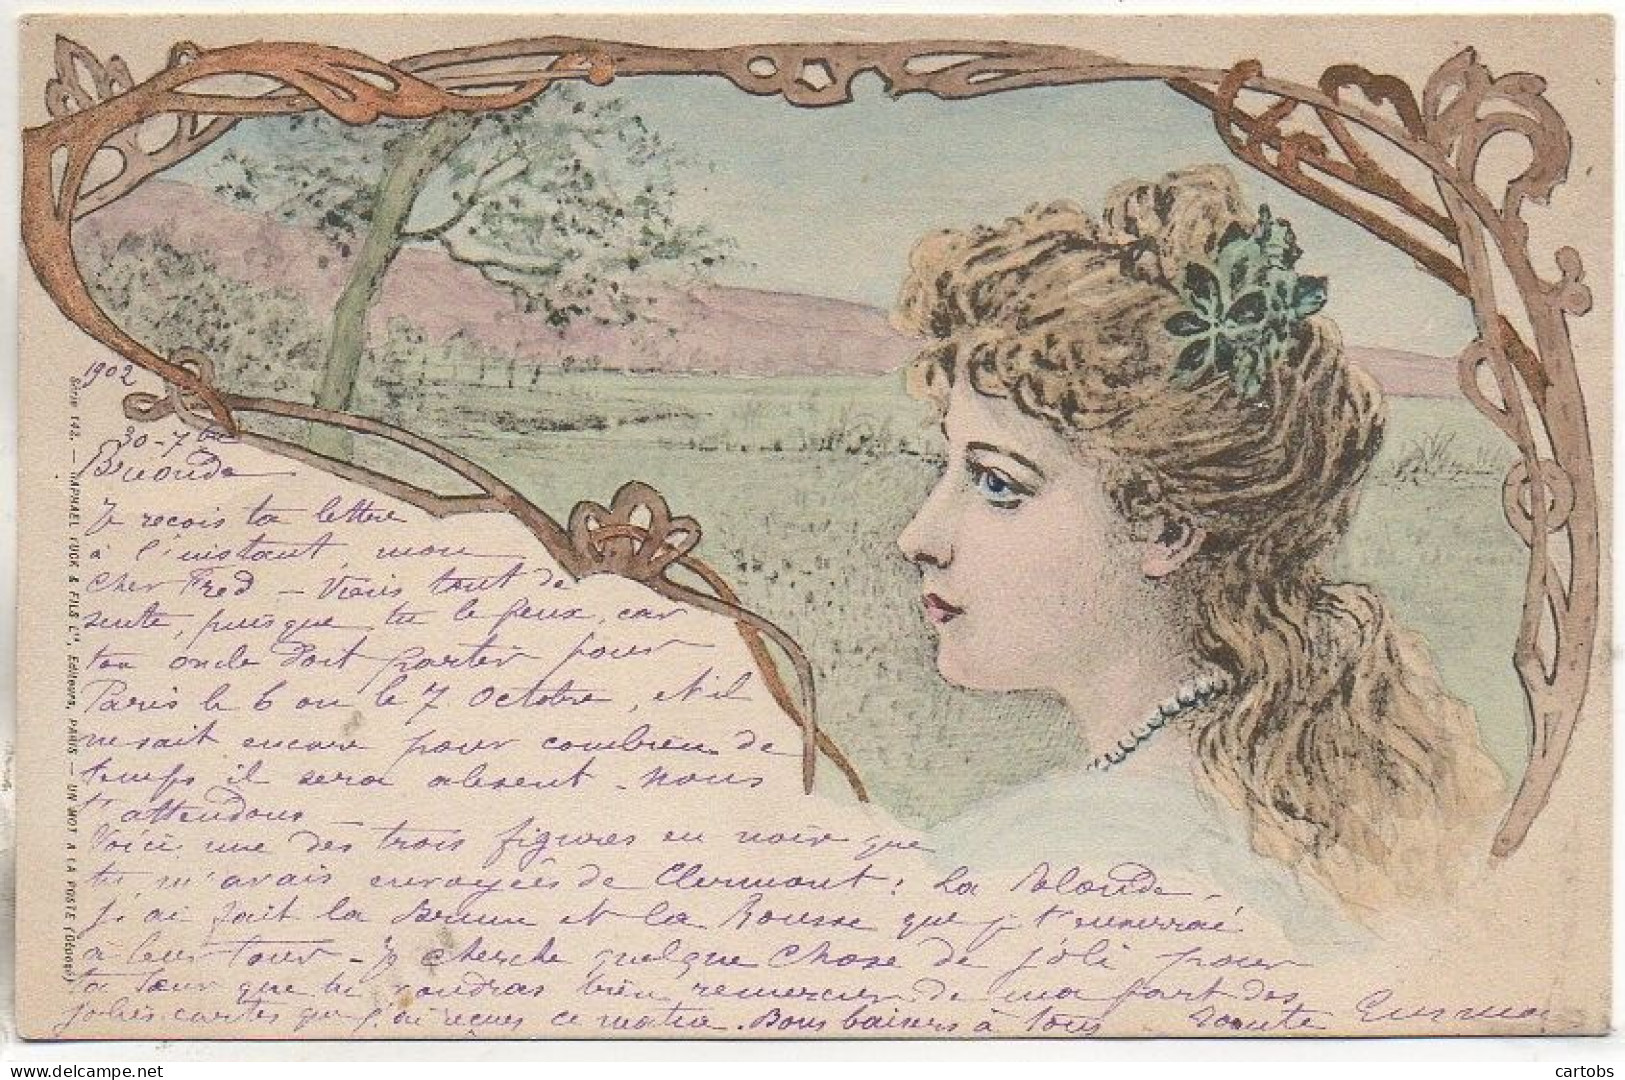 1902
30-7bre
Je recois ta lettre
à l'instant mon
cher Fred - Viens tout de
suite, puisque tu le peux, car
ton oncle doit partir pour
Paris le 6 ou le 7 Octobre, et il
ne sait encore pour combien de
temps il sera absent. nous
t'attendons
Voici une des trois figures en noir que
tu m'avais envoyées de Clermont : La Blonde -
j'ai fait la Brune et la Rousse que je t'enverrai
à leur tour - Je cherche quelque chose de joli pour
ta Sœur que tu voudras bien remercier de ma part des
jolies cartes que j'ai reçues ce matin. Bons baisers à tous
Emma
Série 142. — RAPHAEL TUCK & FILS Ld, Editeurs, PARIS — UN MOT A LA POSTE (Déposé)
cartobs